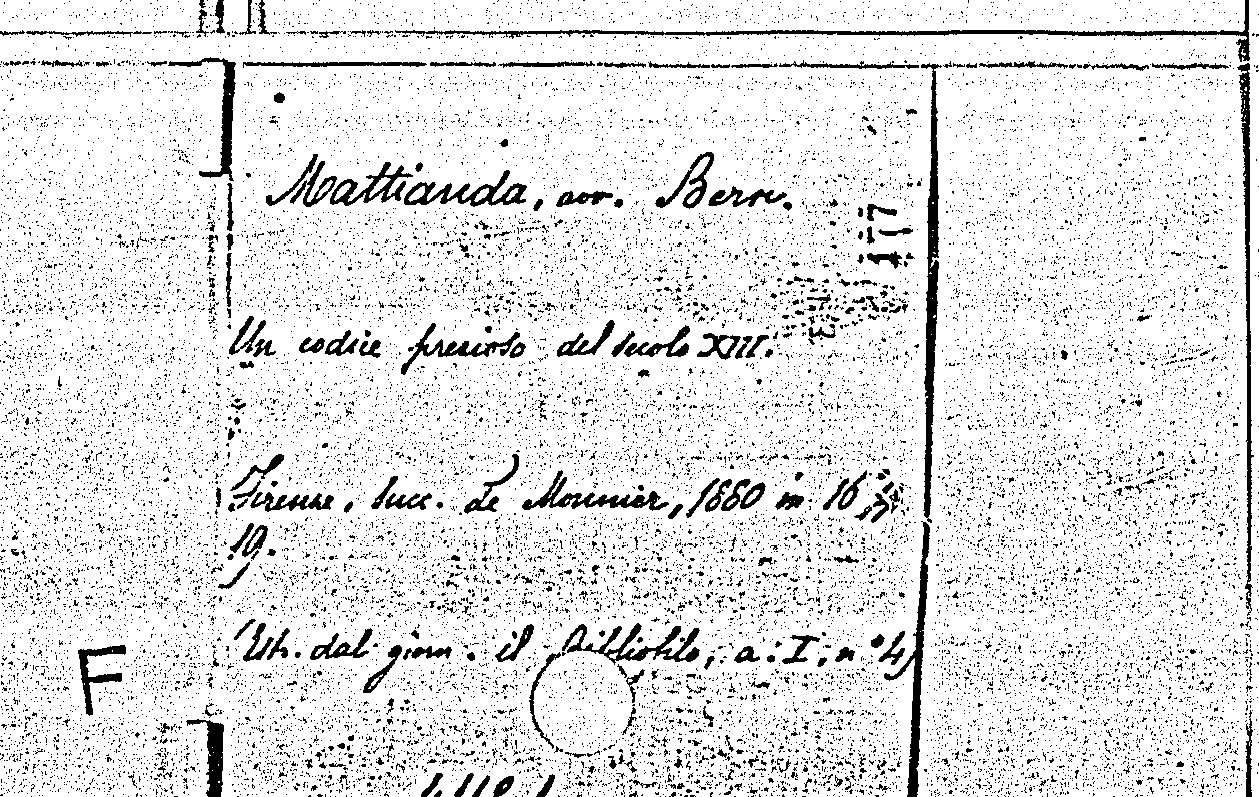 Mattiauda, avv. Bern.
177
Un codice prezioso del secolo XIII.
Firenze, succ. Le Monnier, 1880 in 16
19.
Estr. dal giorn. il Bibliofilo, a. I, n° 4
F